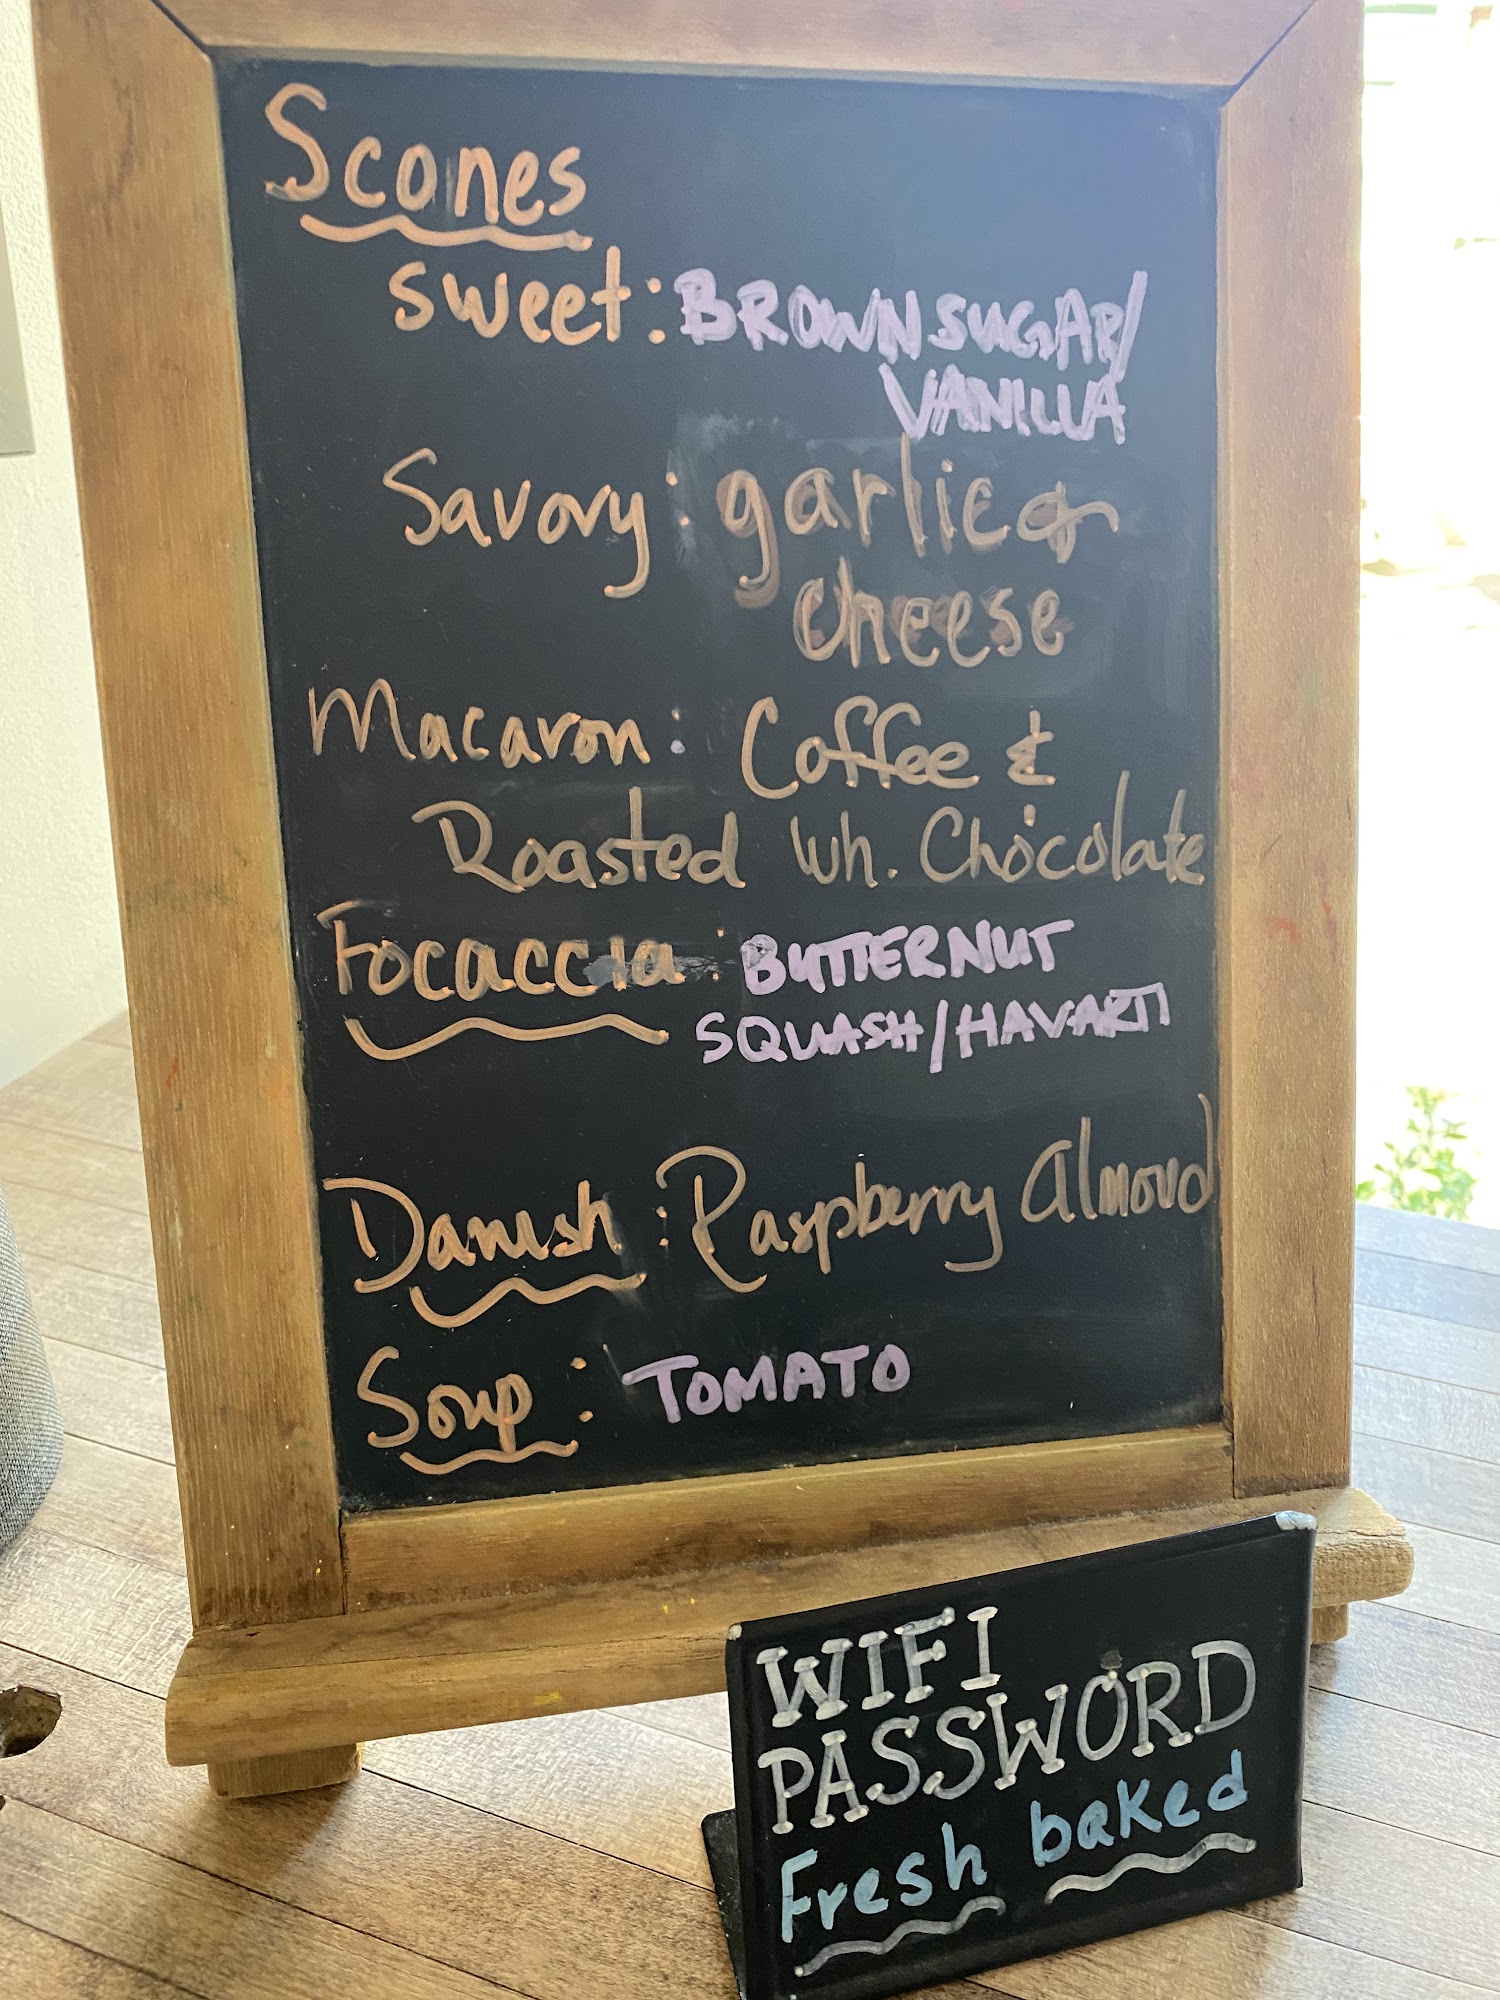 Scones
sweet: BROWN SUGAR/
VANILLA
Savory: garlic &
cheese
Macaron: Coffee &
Roasted Wh. Chocolate
Focaccia: BUTTERNUT
SQUASH/HAVARTI
Danish: Raspberry Almond
Soup: TOMATO
WIFI
PASSWORD
Fresh baked